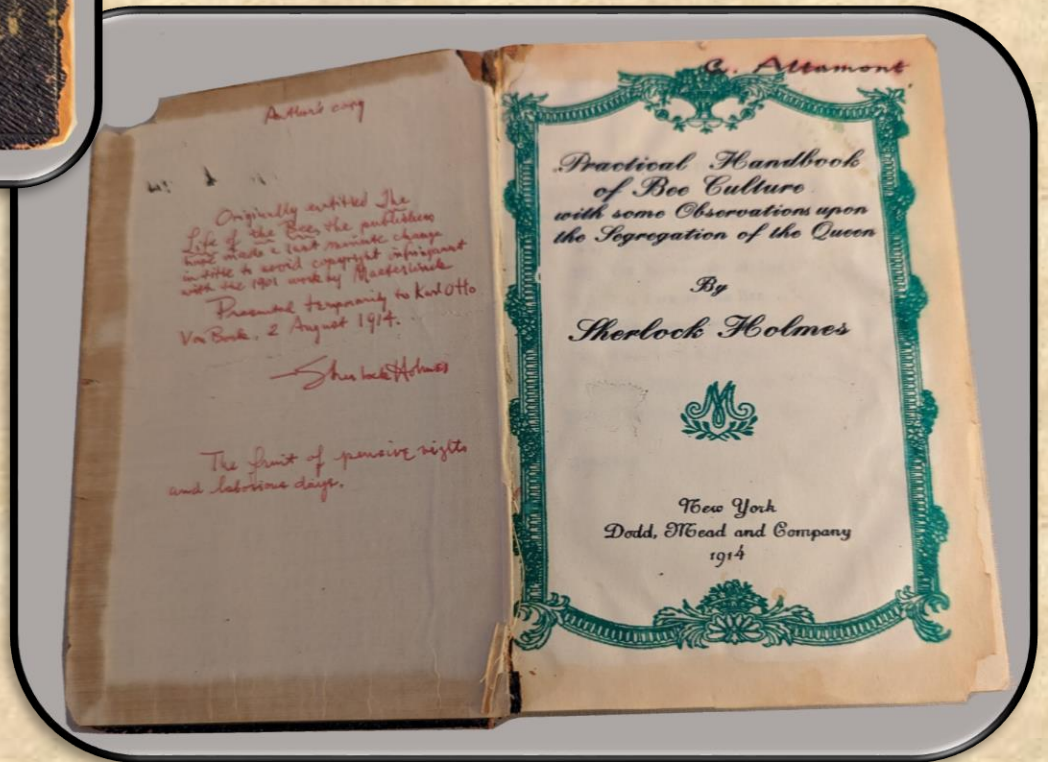 Author's copy
Originally entitled The
Life of the Bee, the publishers
have made a last minute change
in title to avoid copyright infringment
with the 1901 work by Maeterlinck
Presented temporarily to Karl Otto
Von Bork. 2 August 1914.
Sherlock Holmes
The fruit of pensive nights
and laborious days.
G. Altamont
Practical Handbook
of Bee Culture
with some Observations upon
the Segregation of the Queen
By
Sherlock Holmes
M
New York
Dodd, Mead and Company
1914